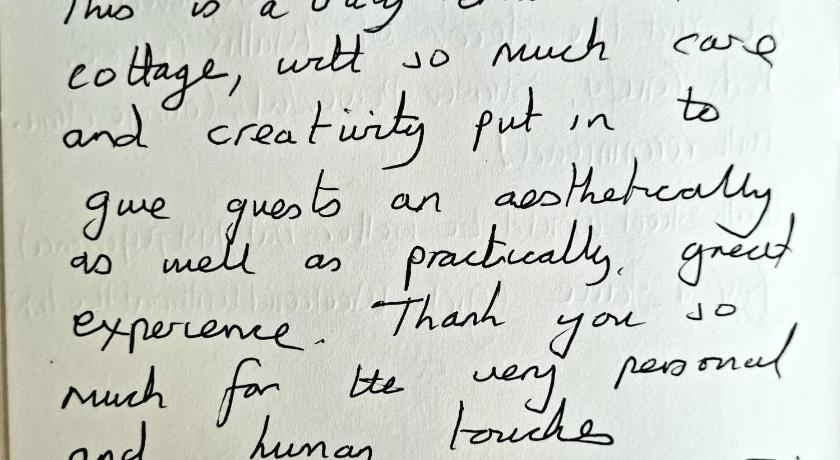 This is a
cottage, with so much care
and creativity put in to
give guests an aesthetically
as well as practically, great
experience. Thank you so
much for the very personal
and human touches